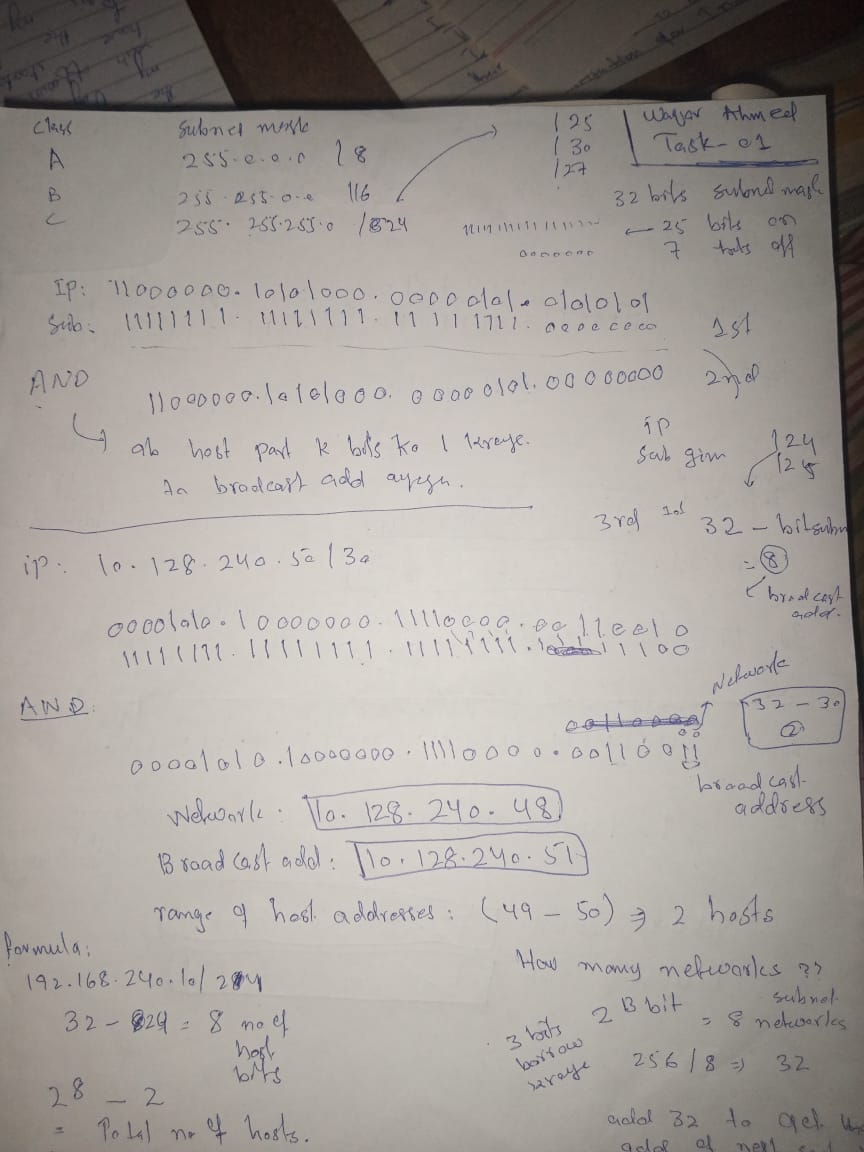 Class Subnet mask
A 255.0.0.0 /8
B 255.255.0.0 /16
C 255.255.255.0 /24
/25
/30
/27
Waqar Ahmed
Task-01
32 bits subnet mask
← 25 bits on
7 bits off
1111111 1111111111
0000000
IP: 11000000.10101000.00000101.01010101
Sub: 11111111.11111111.11111111.00000000
1st
AND 11000000.10101000.00000101.00000000
2nd
ab host part k bits ko 1 kreye.
To brodcast add ayega.
ip
Sub
/24
/25
3rd 32-bit
= 8
brodcast
addr.
ip: 10.128.240.50/30
00001010.10000000.11110000.00110010
11111111.11111111.11111111.11111100
AND
Network
32-30
2
00001010.10000000.11110000.00110011
00
broadcast
address
Network: 10.128.240.48
Broadcast add: 10.128.240.51
range of host addresses: (49-50) ⇒ 2 hosts
formula:
192.168.240.10/24
32-24 = 8 no of
host
bits
2^8 - 2
= Total no of hosts.
How many networks ??
3 bits
borrow
kraye
2 3 bit = 8 networks
subnet
256/8 ⇒ 32
add 32 to get
add of next